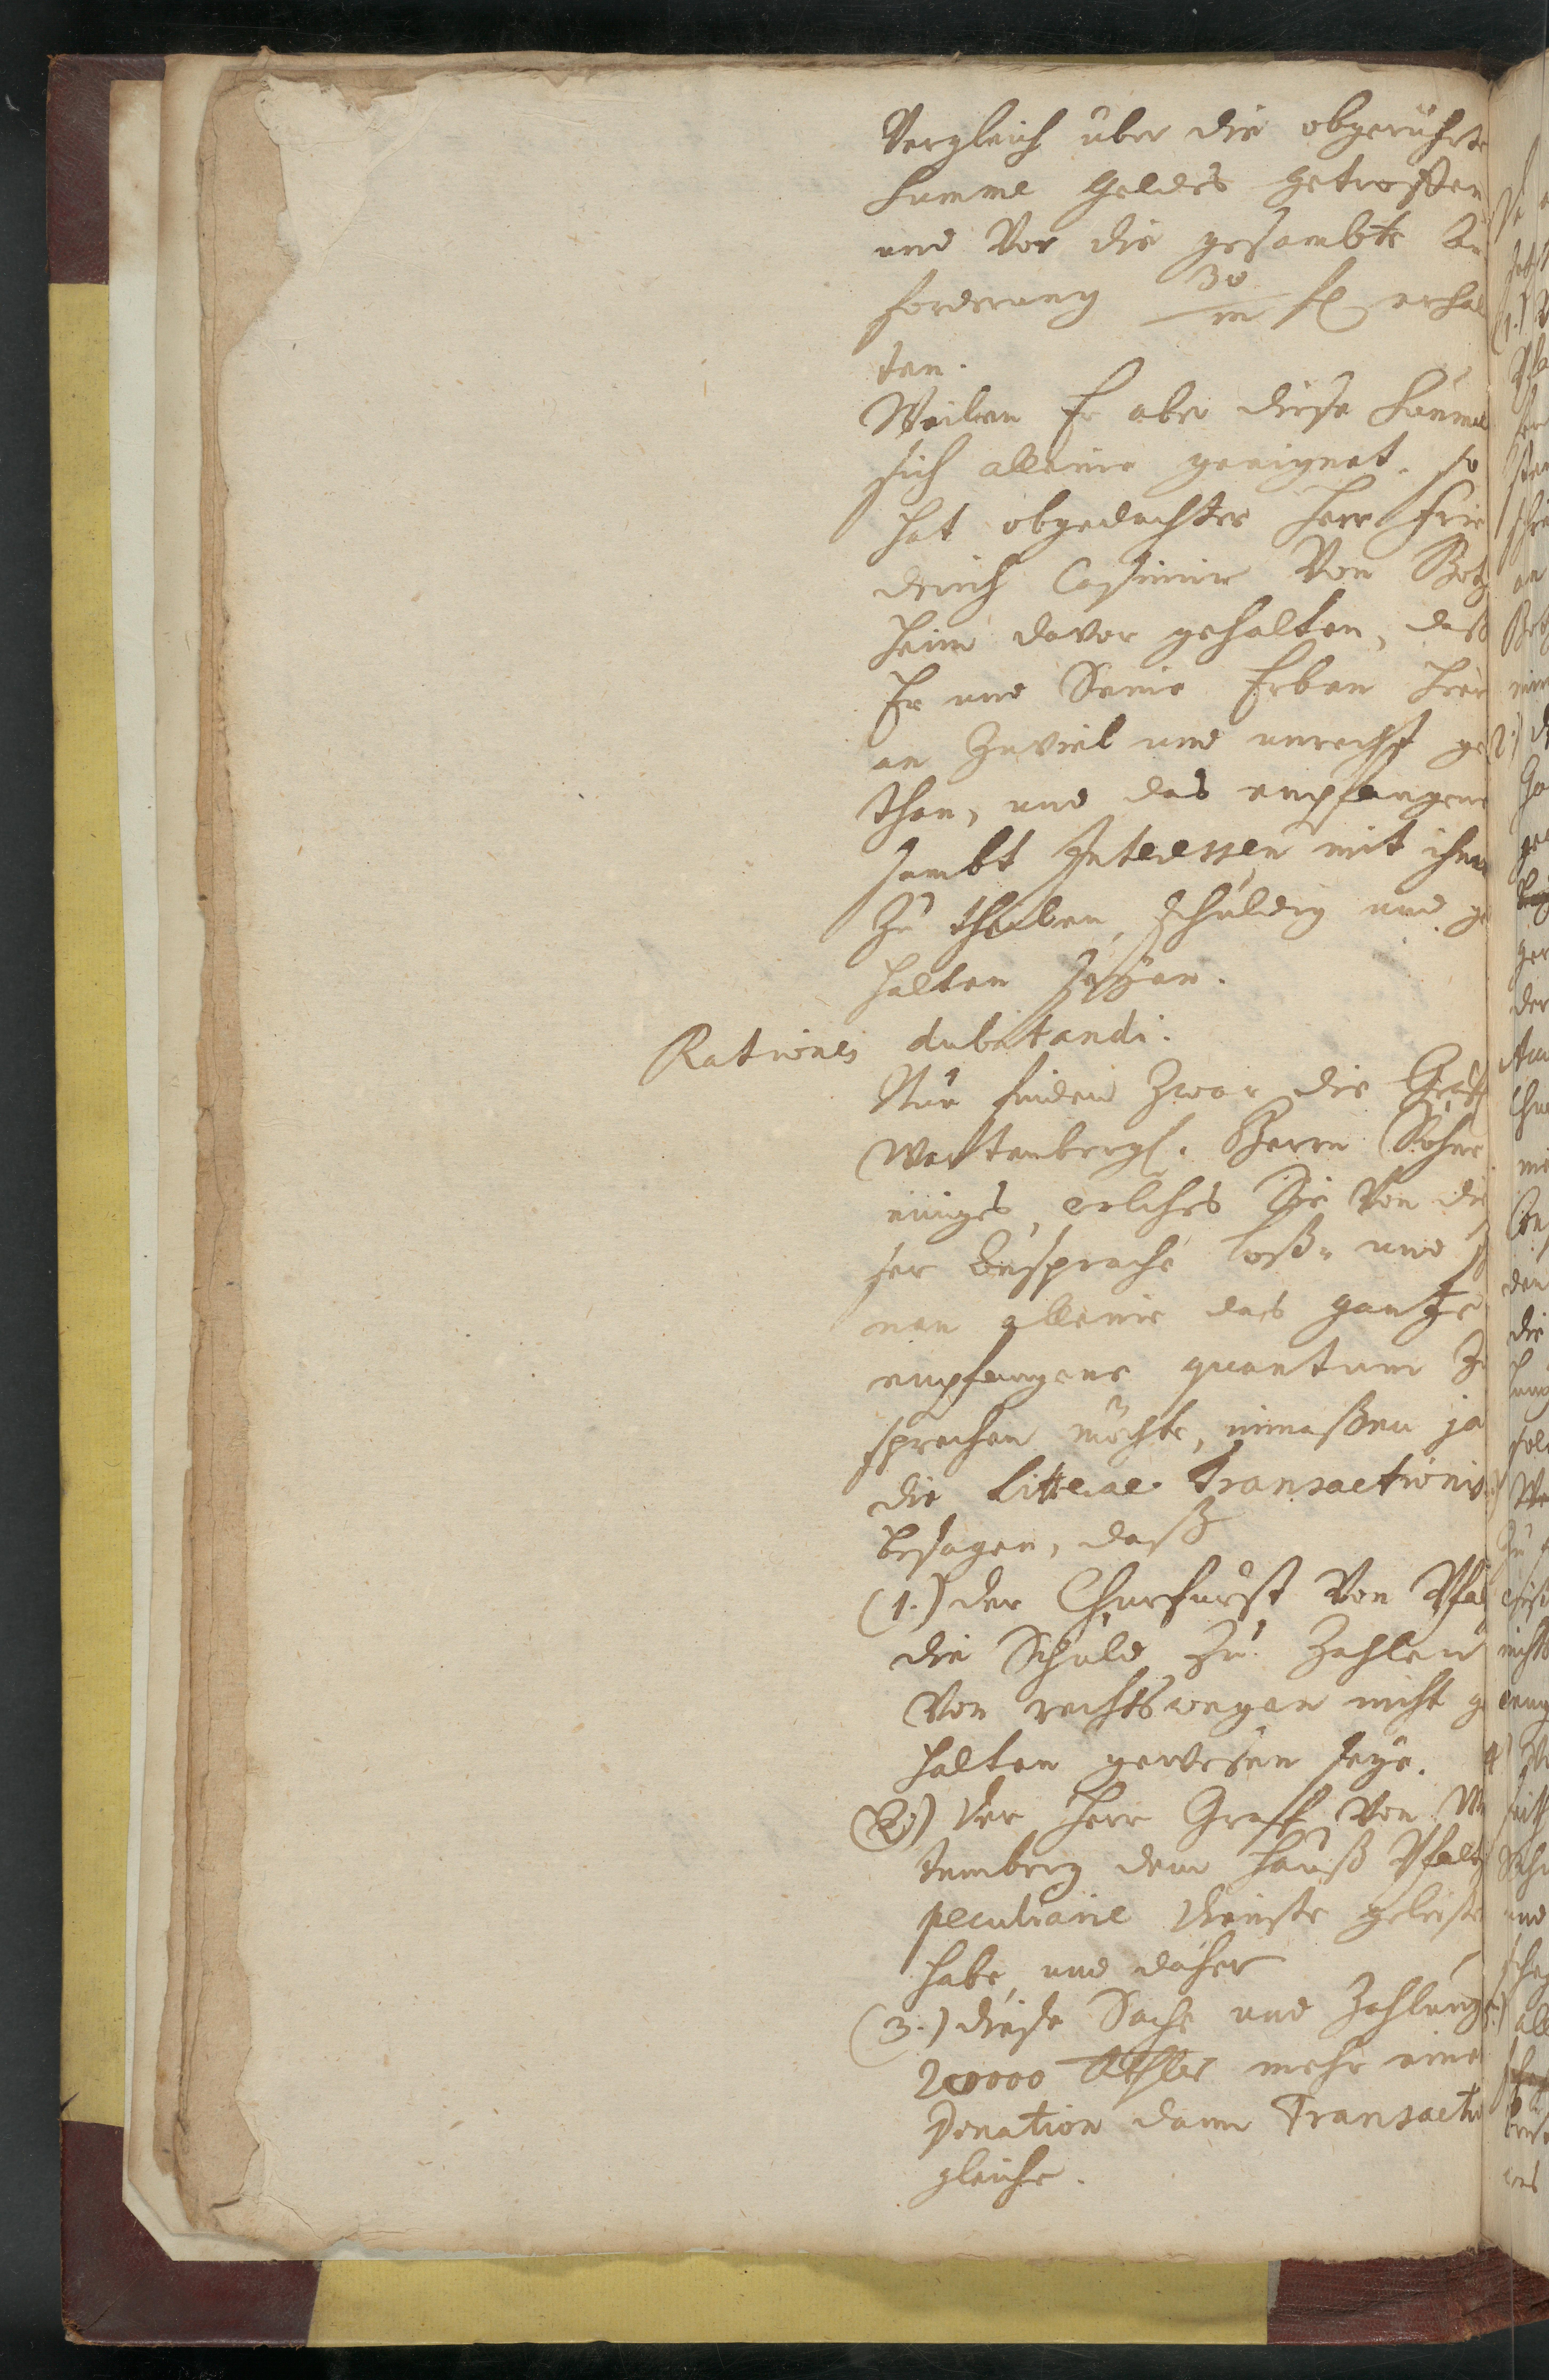 Vergleich über die obgerührte
Summe Geldes getroffen
und Vor die gesambte An
forderung 30/m fl erhal
ten.
Weilen Er aber diese Summe
sich alleine geeignet. so
hat obgedachter Herr Frie
derich Casimir Von Botz
heim davor gehalten, daß
Er und Seine Erben hier
an Zuviel und unrecht ge
than, und das empfangene
sambt Interessen mit ihm
Zu theilen, schuldig und ge
halten seyen.
Rationes dubitandi.
Nun finden Zwar die Gräfl
Wartenbergl. Herrn Söhne
einiges, welches Sie Von die
ser Ansprache loß- und
nen alleine das gantze
empfangene quantum Zu
sprechen möchte, immaßen ja
die Litterae Transactionis
besagen, daß
(1.) der Churfürst Von Pfaltz
die Schuld Zu Zahlen
Von rechtswegen nicht ge
halten gewesen seye.
(2.) der Herr Graff Von War
temberg dem Hauß Pfaltz
peculiaire Dienste geleistet
habe, und daher
(3.) diese Sache und Zahlung
20000 Rthlr mehr einer
Donation dann Transaction
gleiche.